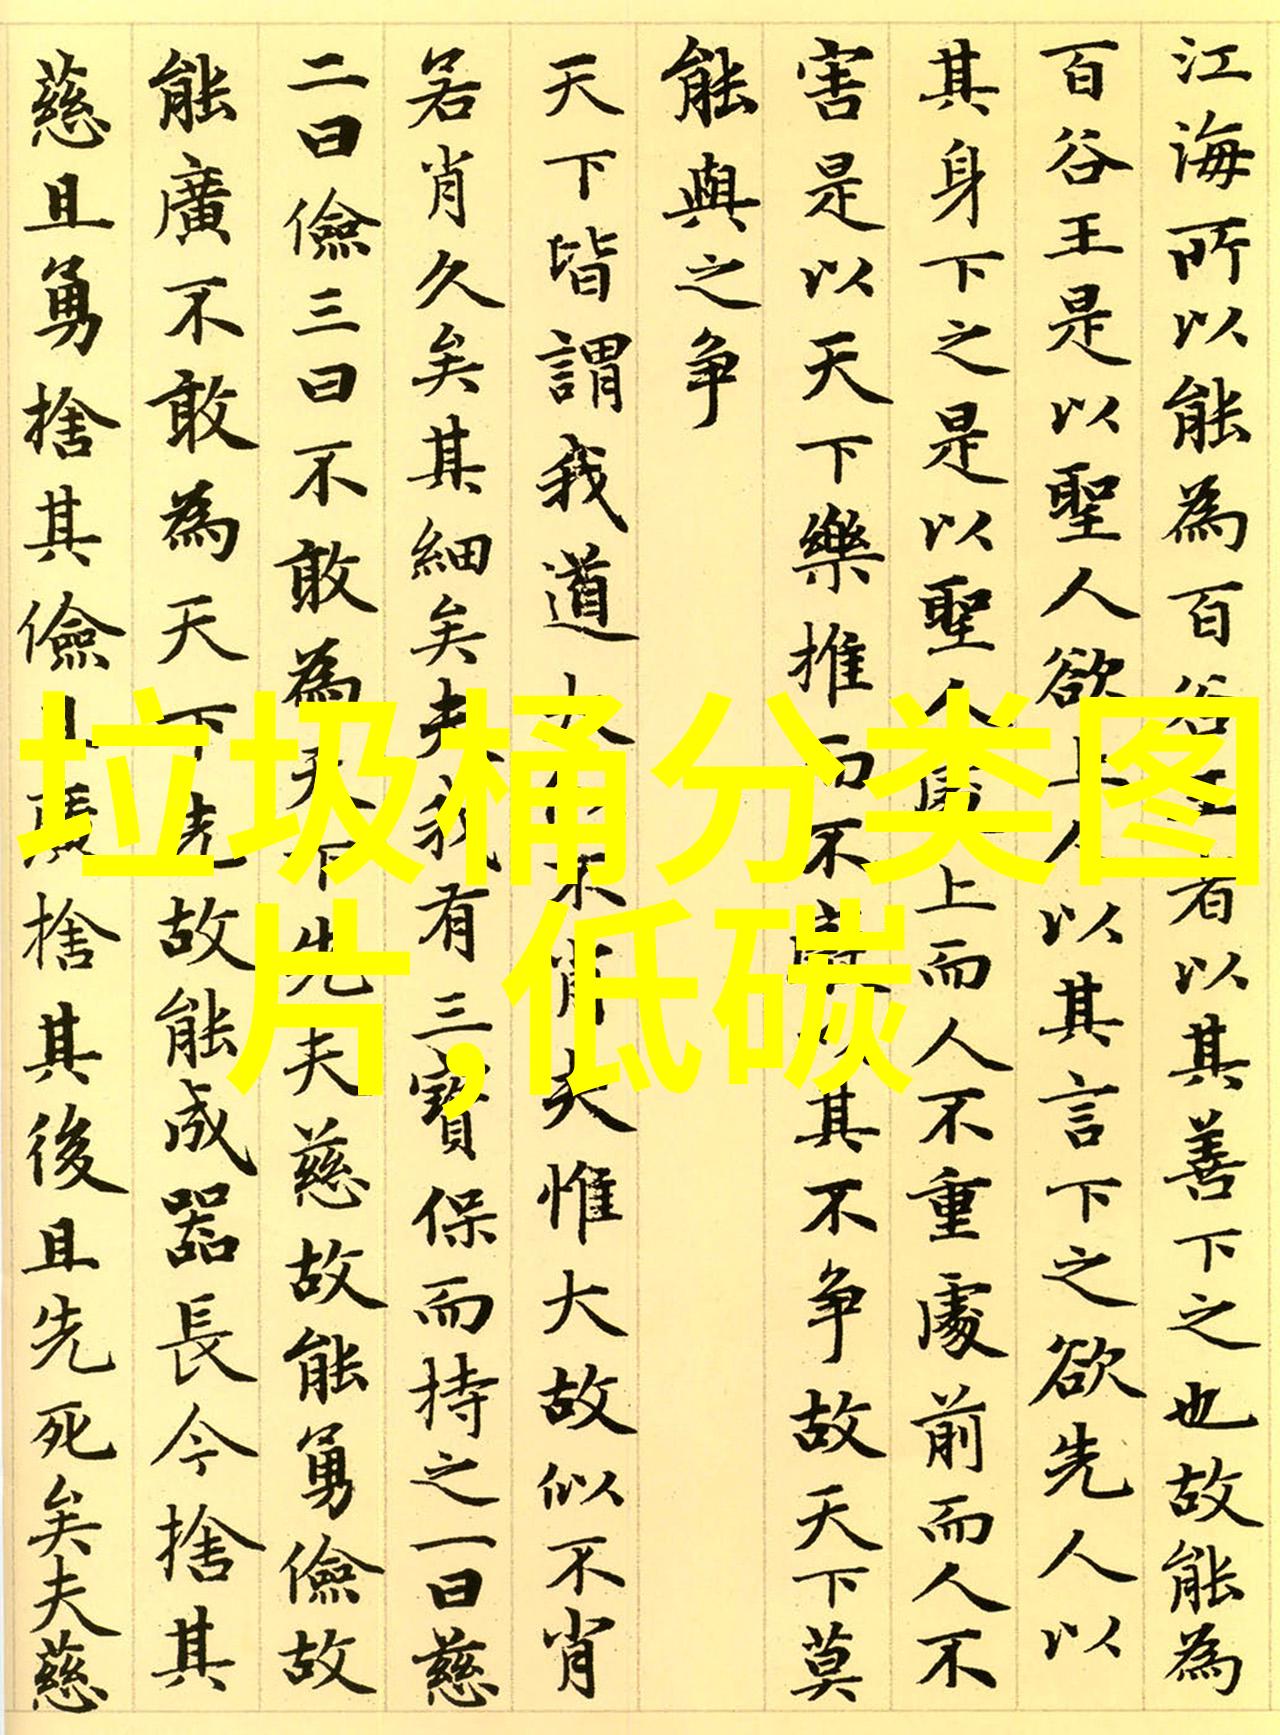 江海所以能為百谷王者以其善下之也故能為
百谷王是以聖人欲上人以其言下之欲先人以
其身下之是以聖人處上而人不重處前而人不
害是以天下樂推而不厭以其不争故天下莫
能與之争
天下皆謂我道大似不肖夫惟大故似不肖
若肖久矣其細矣夫我有三寶保而持之一曰慈
二曰儉三曰不敢為天下先夫慈故能勇儉故
能廣不敢為天下先故能成器長今捨其
慈且勇捨其儉且廣捨其後且先死矣夫慈
垃圾桶分类图
片,低碳